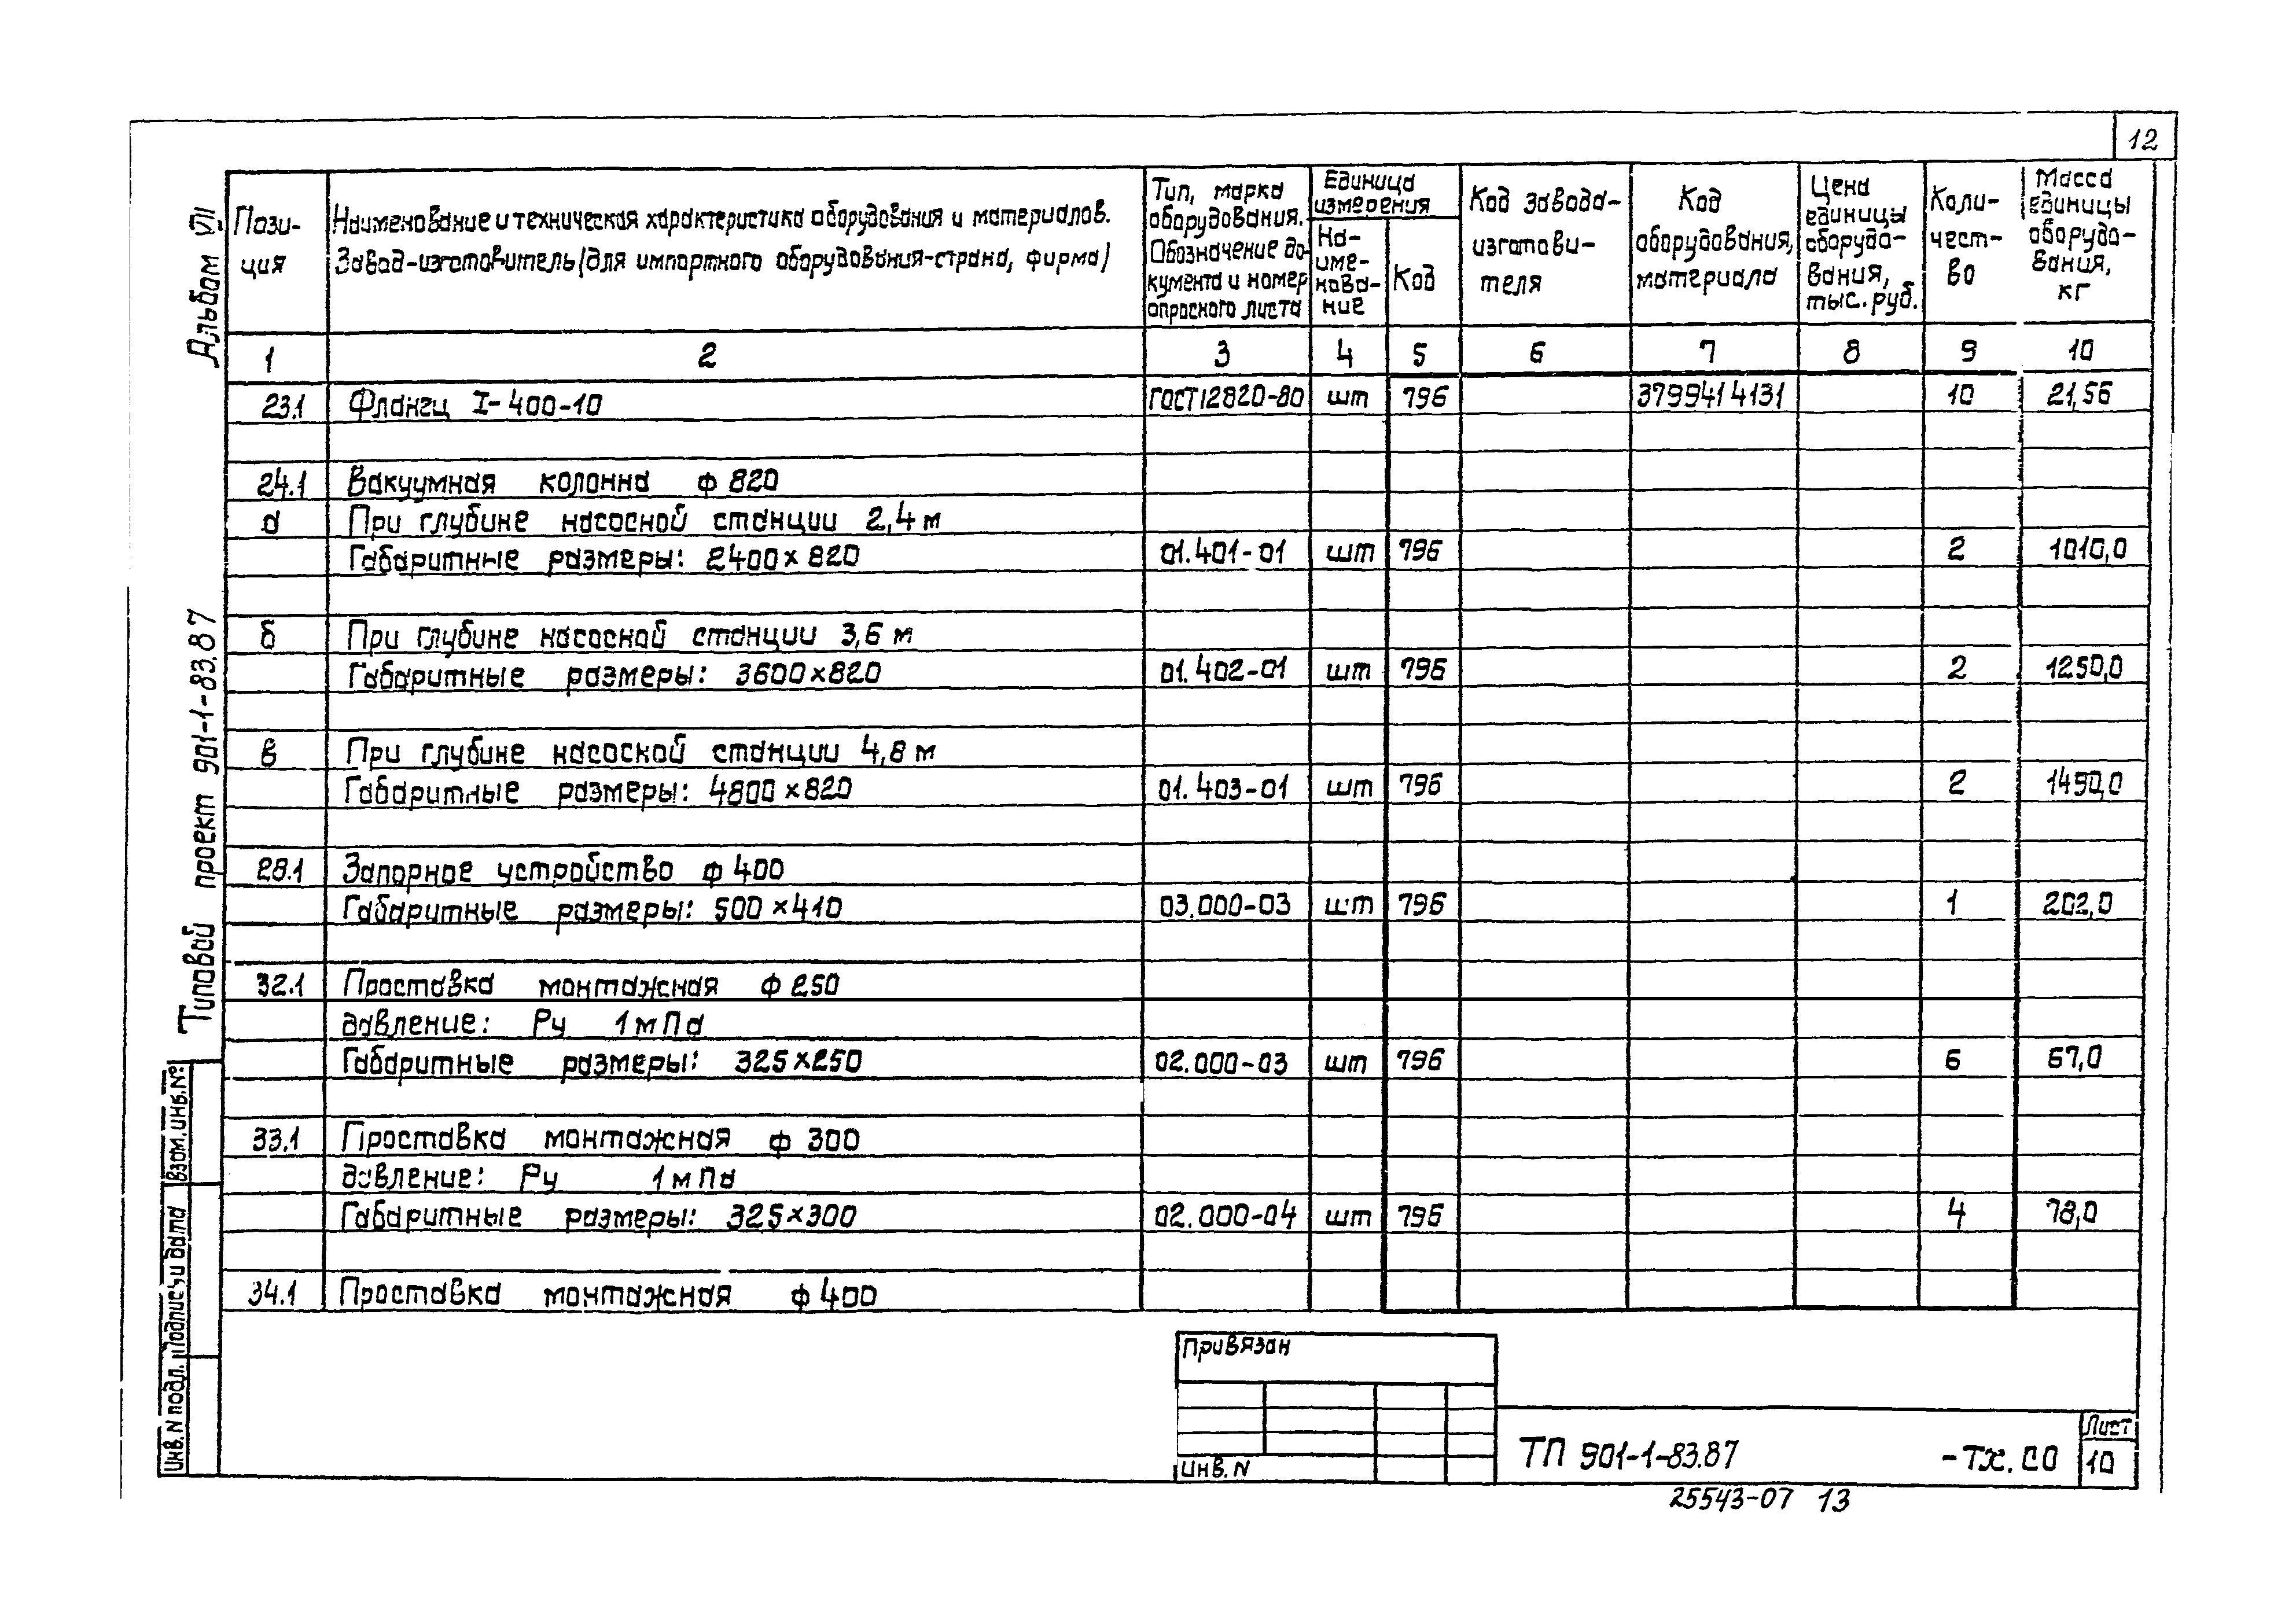 12
Альбом VII
Типовой проект 901-1-83.87
Пози-
ция
Наименование и техническая характеристика оборудования и материалов.
Завод-изготовитель (для импортного оборудования-страна, фирма)
Тип, марка
оборудования.
Обозначение до-
кумента и номер
опросного листа
Единица
измерения
На-
име-
нова-
ние
Код
Код завода-
изготави-
теля
Код
оборудования,
материала
Цена
единицы
оборудо-
вания,
тыс. руб.
Коли-
чест-
во
Масса
единицы
оборудо-
вания,
кг
1 2 3 4 5 6 7 8 9 10
23.1 Фланец I-400-10 ГОСТ12820-80 шт 796 3799414131 10 21,56
24.1 Вакуумная колонна ф 820
а При глубине насосной станции 2,4 м
Габаритные размеры: 2400 х 820 01.401-01 шт 796 2 1010,0
б При глубине насосной станции 3,6 м
Габаритные размеры: 3600х820 01.402-01 шт 796 2 1250,0
в При глубине насоской станции 4,8 м
Габаритные размеры: 4800 х 820 01.403-01 шт 796 2 1490,0
28.1 Запорное устройство ф 400
Габаритные размеры: 500 х 410 03.000-03 шт 796 1 202,0
32.1 Проставка монтажная ф 250
давление: Ру 1мПа
Габаритные размеры: 325х250 02.000-03 шт 796 6 67,0
33.1 Проставка монтажная ф 300
давление: Ру 1мПа
Габаритные размеры: 325х300 02.000-04 шт 796 4 78,0
34.1 Проставка монтажная ф 400
Взам. инв. №
Подпись и дата
Инв. N подл.
Привязан
Инв. N
ТП 901-1-83.87 -ТХ.СО
Лист
10
25543-07 13